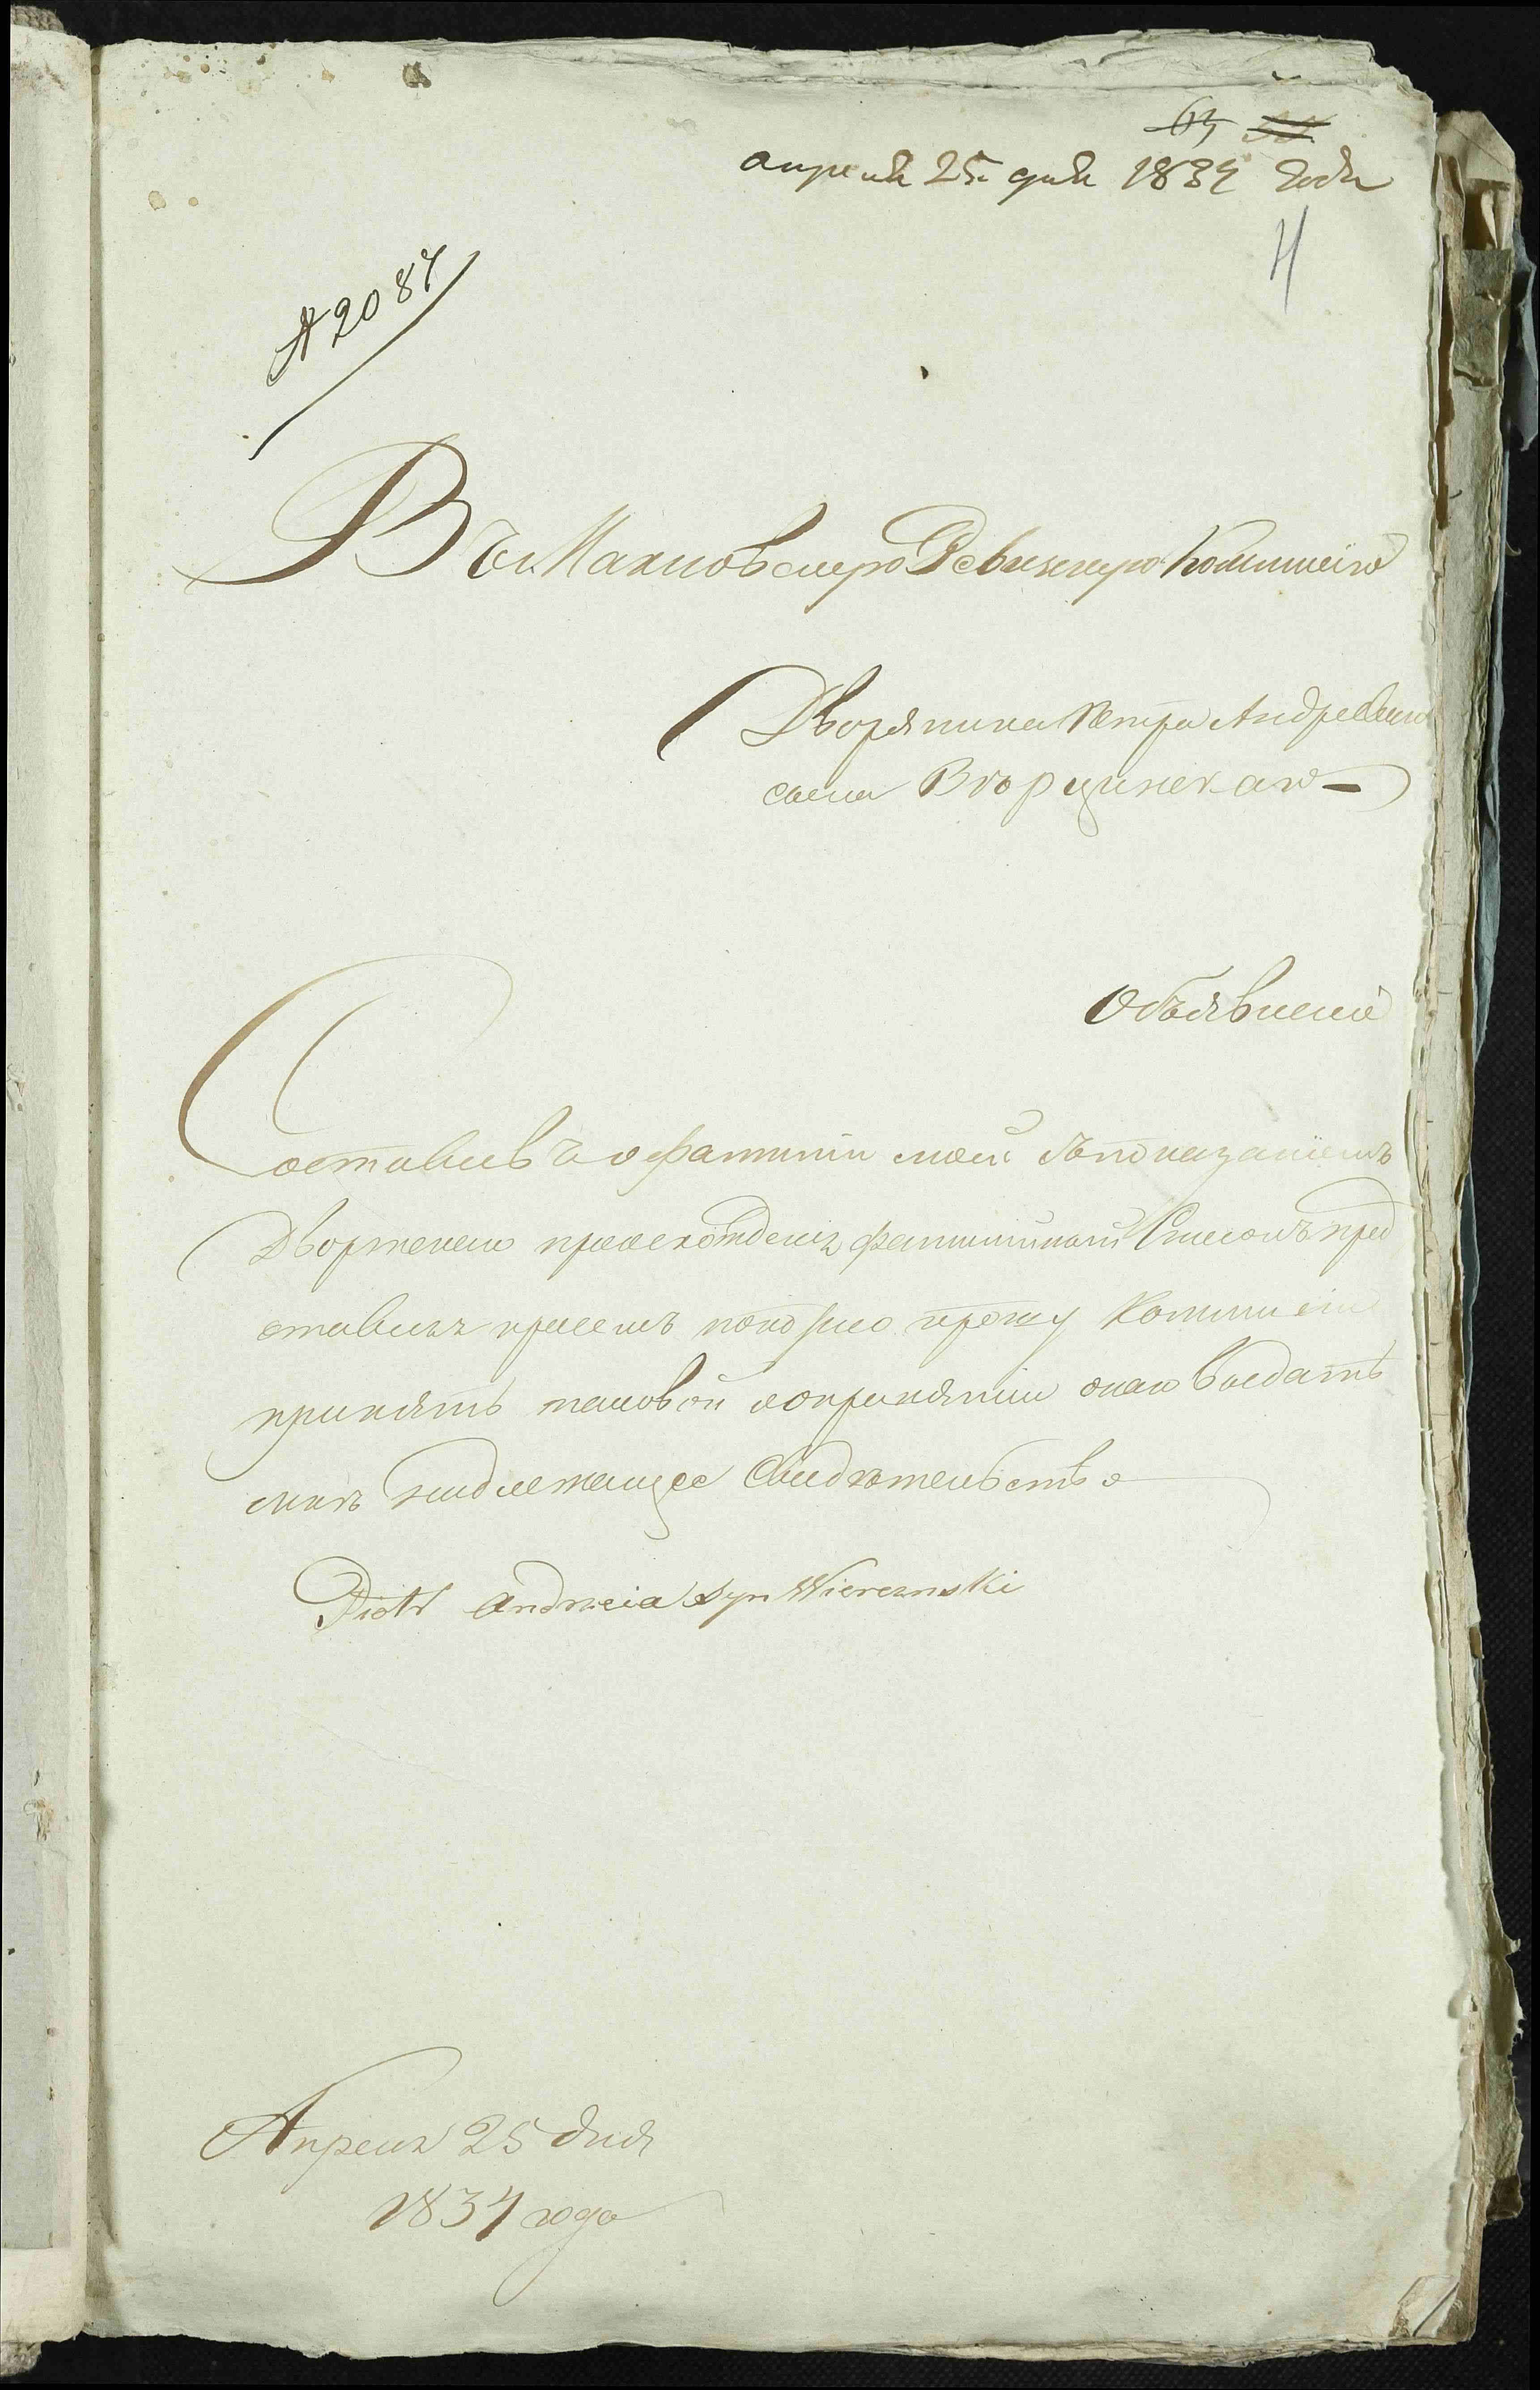 апреля 25 дня 1834 года
4
№ 2084
Въ Махновскую Ревизскую Коммисiю
Дворянина Петра Андреева
сына Вѣрцинскаго
Объявленiе
Составивъ о фамилiи моей съ показанiемъ
Дворянскаго происхожденiя фамилiйный Списокъ пред
ставляя при семъ покорно прошу Коммисiю
принять таковой и о принятiи онаго выдать
мнѣ надлежащее Свидѣтельство
Piotr Andrzeia syn Wiercinski
Апреля 25 дня
1834 года